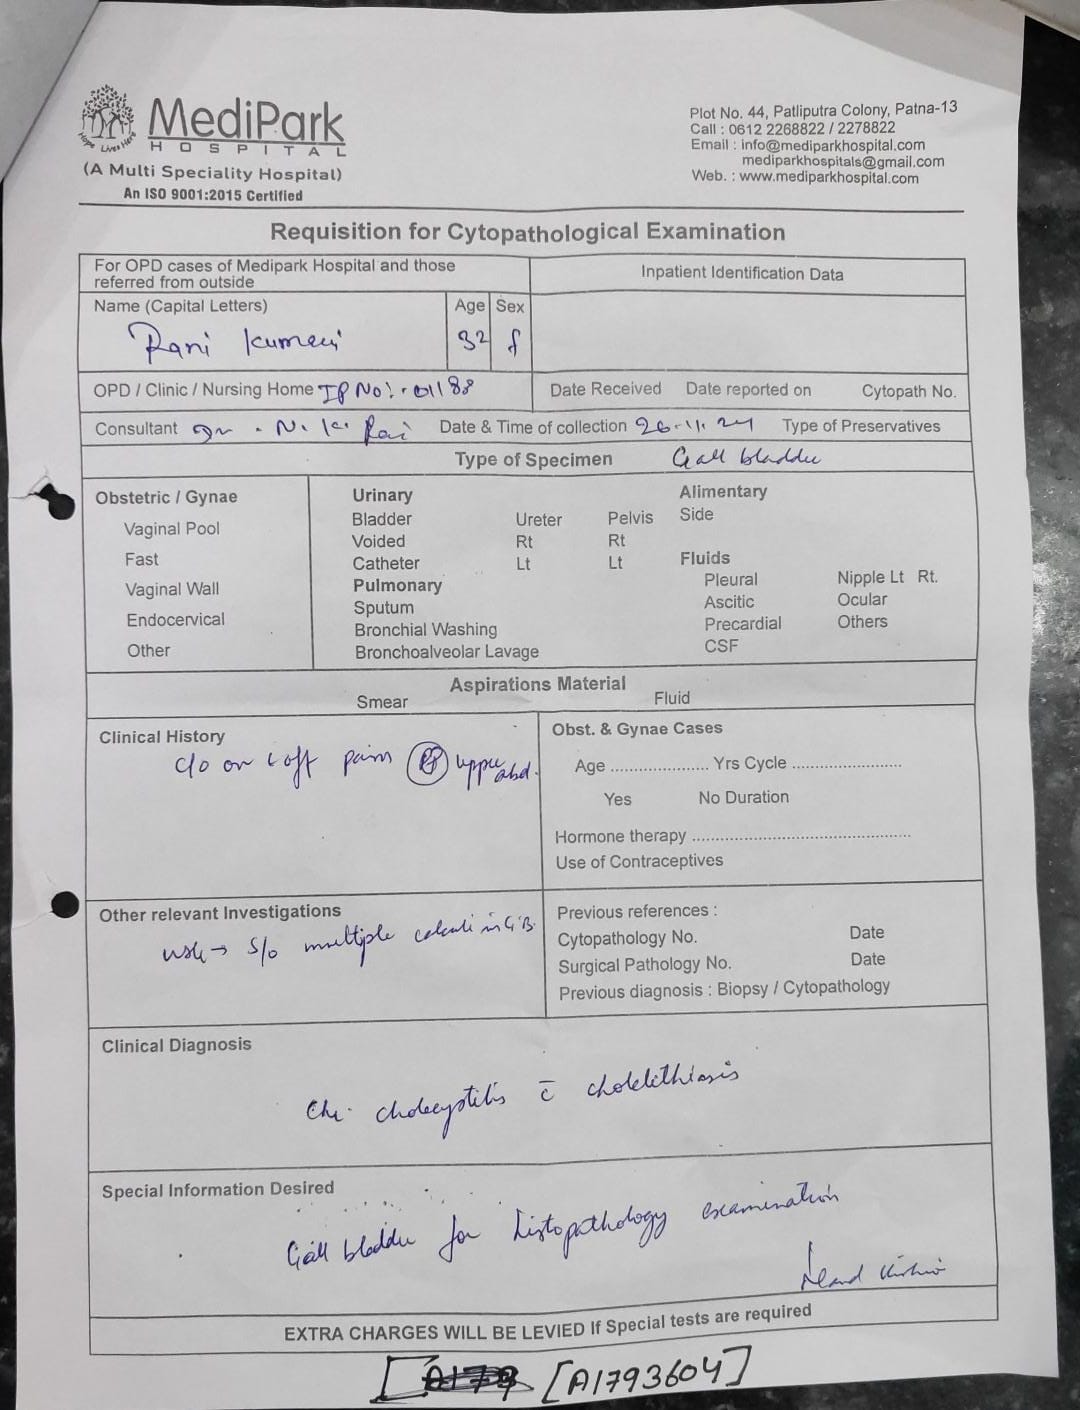 MediPark
HOSPITAL
Hope Lives Here
(A Multi Speciality Hospital)
An ISO 9001:2015 Certified
Plot No. 44, Patliputra Colony, Patna-13
Call : 0612 2268822 / 2278822
Email : info@mediparkhospital.com
mediparkhospitals@gmail.com
Web. : www.mediparkhospital.com
Requisition for Cytopathological Examination
For OPD cases of Medipark Hospital and those
referred from outside
Inpatient Identification Data
Name (Capital Letters) Age Sex
Rani Kumari 32 f
OPD / Clinic / Nursing Home IP No:- 01188 Date Received Date reported on Cytopath No.
Consultant Dr. N. K. Rai Date & Time of collection 26.11.24 Type of Preservatives
Type of Specimen Gall bladder
Obstetric / Gynae
Vaginal Pool
Fast
Vaginal Wall
Endocervical
Other
Urinary
Bladder Ureter Pelvis
Voided Rt Rt
Catheter Lt Lt
Pulmonary
Sputum
Bronchial Washing
Bronchoalveolar Lavage
Alimentary
Side
Fluids
Pleural Nipple Lt Rt.
Ascitic Ocular
Precardial Others
CSF
Aspirations Material
Smear Fluid
Clinical History
c/o on & off pain upper abd.
Obst. & Gynae Cases
Age .................... Yrs Cycle ......................
Yes No Duration
Hormone therapy ............................................
Use of Contraceptives
Other relevant Investigations
USG → S/o multiple calculi in G.B.
Previous references :
Cytopathology No. Date
Surgical Pathology No. Date
Previous diagnosis : Biopsy / Cytopathology
Clinical Diagnosis
Chr. cholecystitis c̄ cholelithiasis
Special Information Desired
Gall bladder for histopathology examination
EXTRA CHARGES WILL BE LEVIED If Special tests are required
[A1793604]